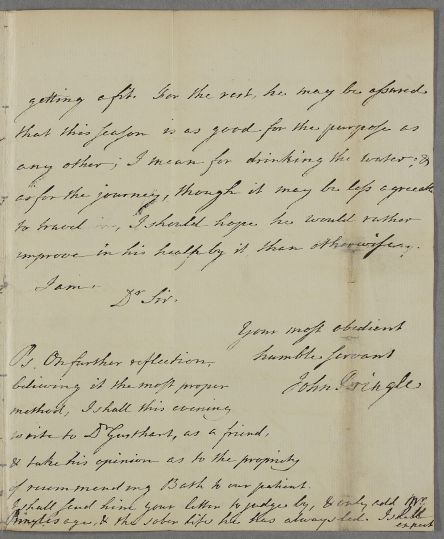 getting a fit. For the rest, he may be assured
that this season is as good for the purpose as
any other; I mean for drinking the water; &
as for the journey, though it may be less agreeable
to travel in, I should hope he would rather
improve in his health by it than otherwise.
I am.
Dr Sir.
Your most obedient
humble servant
John Pringle
Ps. On further reflection,
believing it the most proper
method, I shall this evening
write to Dr Gusthart, as a friend,
& take his opinion as to the propriety
of recommending Bath to our patient.
I shall send him your letter to judge by, & only add Mr
Pringle's age, & the sober life he has always led. I shall
expect